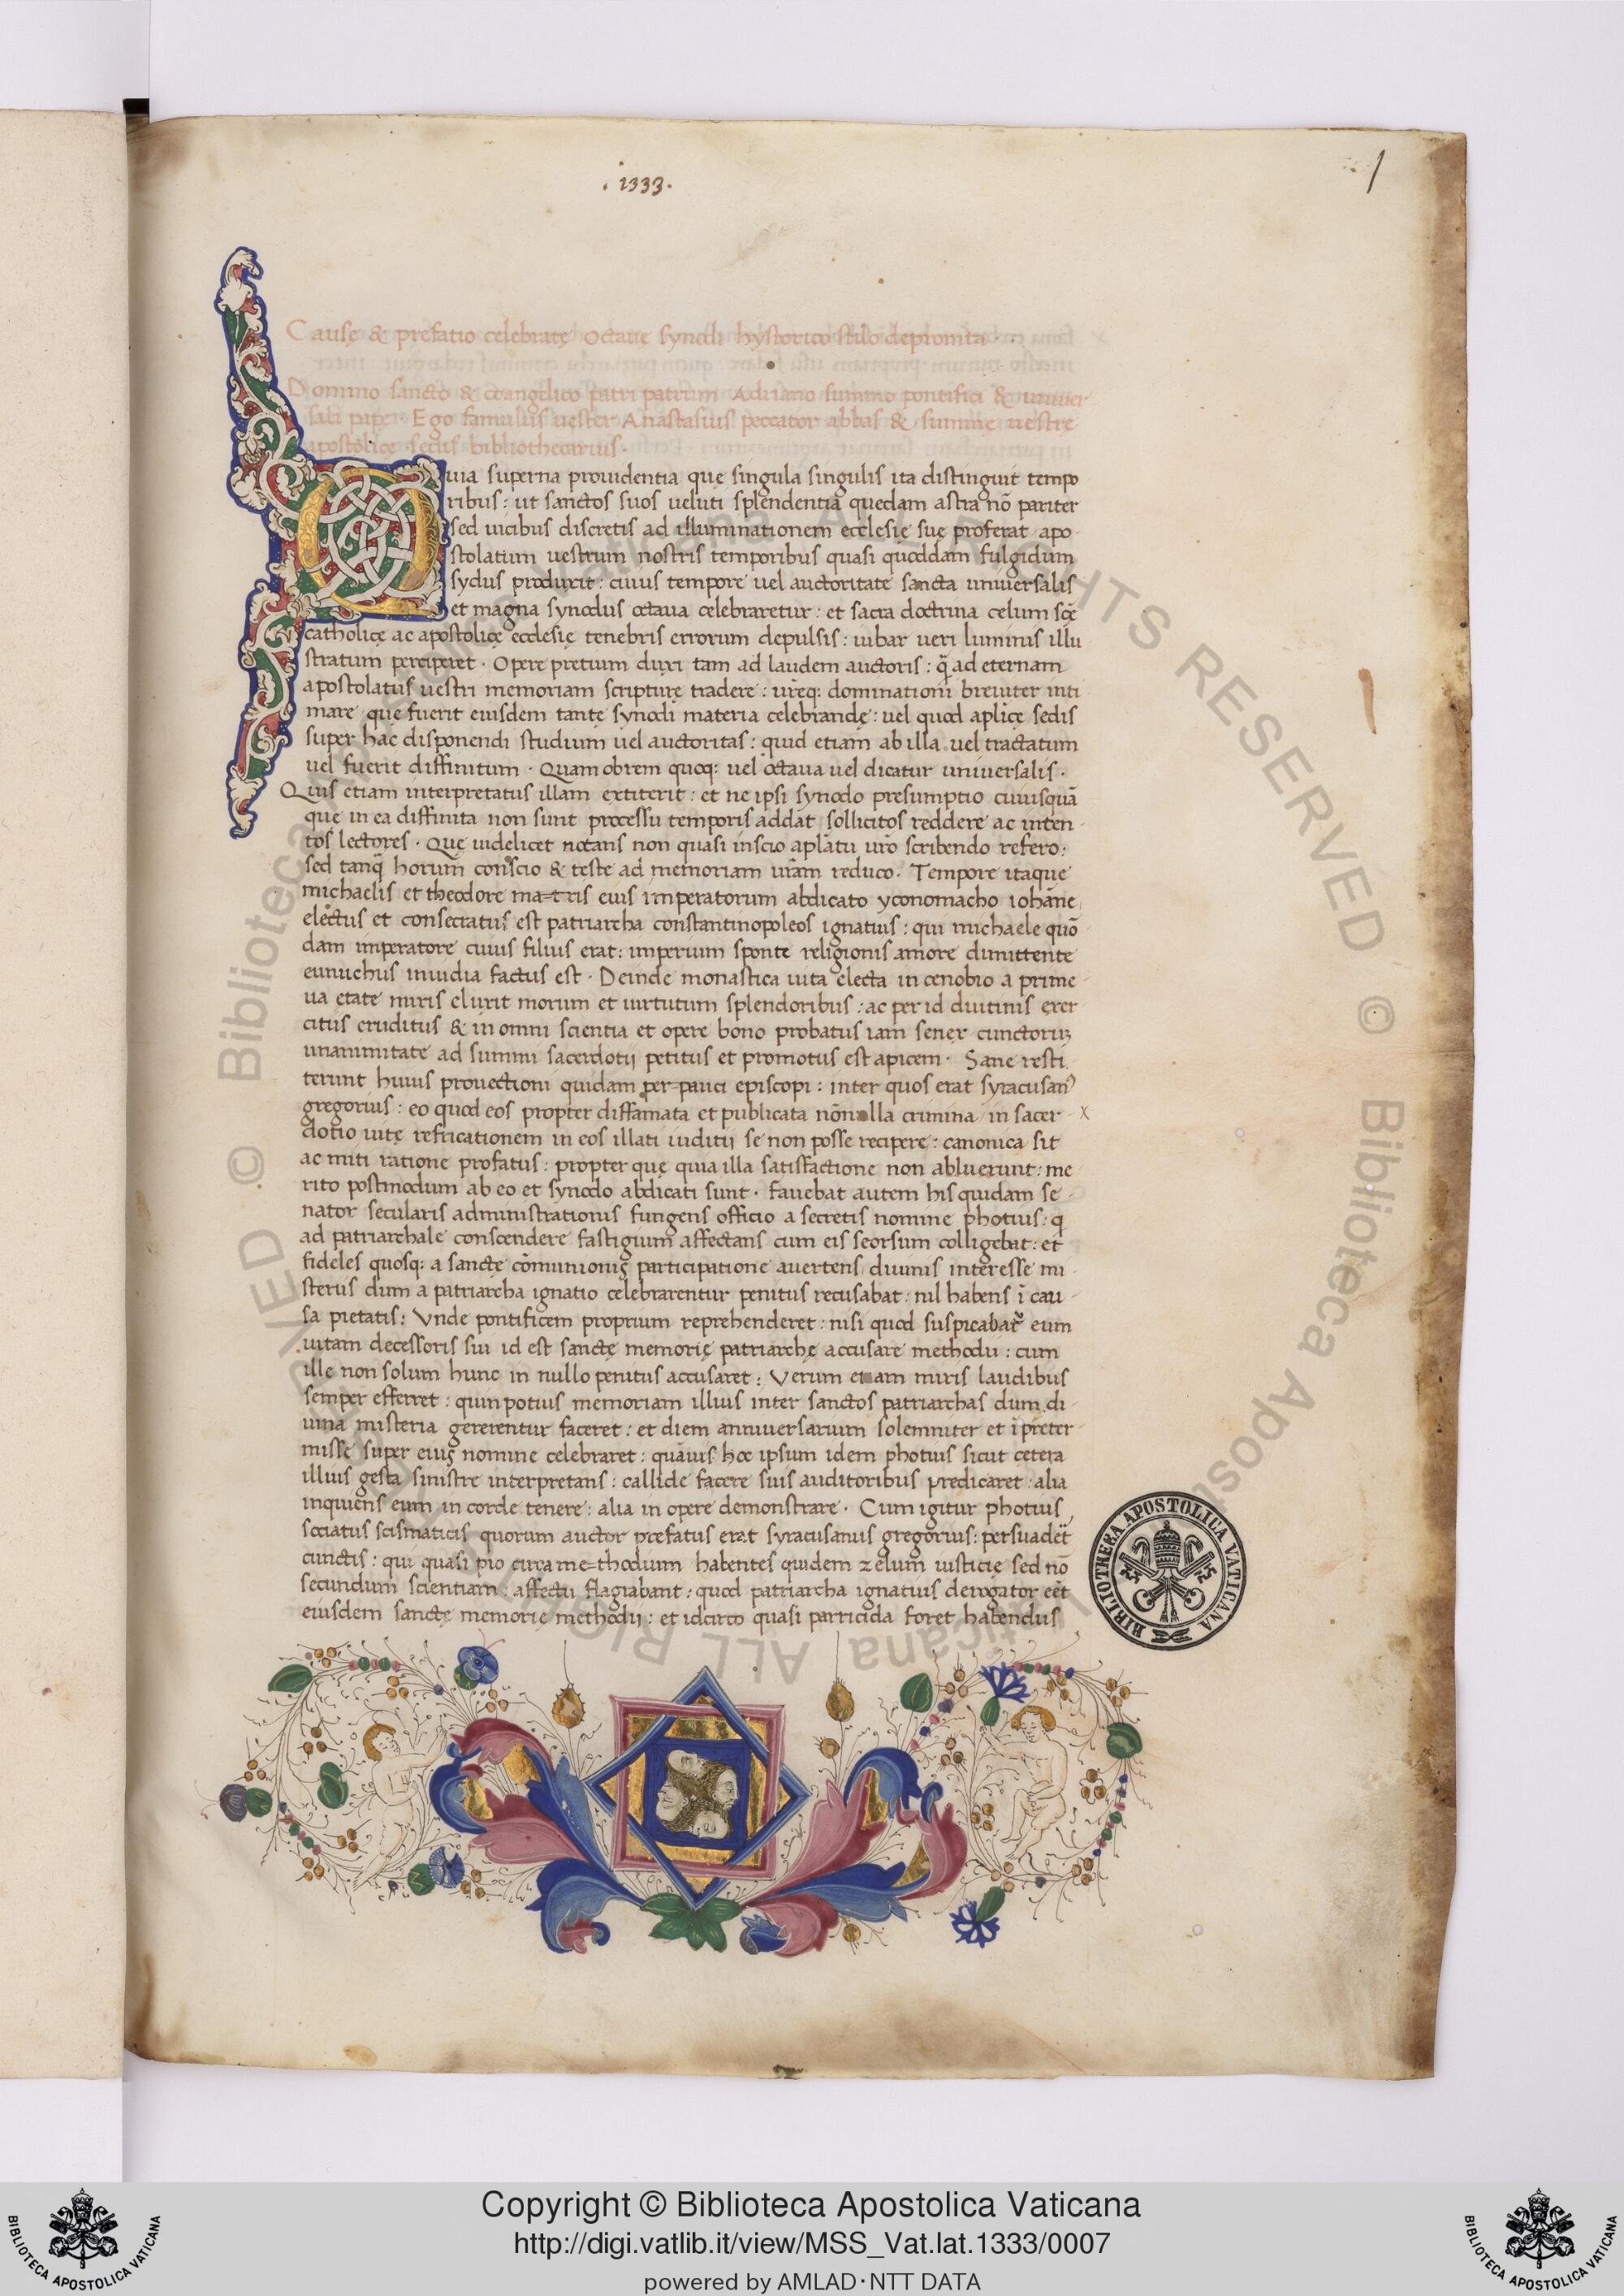 . 1333.
1
Causę & prefatio celebratę octauę synodi hystorico stilo depromta.
Domino sancto & coangelico patri patrum Adriano summo pontifici & uniuer
sali papę. Ego famulus uester Anastasius peccator abbas & summę uestrę
apostolicę sedis bibliothecarius.
Quia superna prouidentia quę singula singulis ita distinguit tempo
ribus: ut sanctos suos ueluti splendentia quedam astra nō pariter
sed uicibus discretis ad illuminationem ecclesię suę proferat apo
stolatum uestrum nostris temporibus quasi quoddam fulgidum
sydus produxit: cuius tempore uel auctoritate sancta uniuersalis
et magna synodus octaua celebraretur: et sacra doctrina celum scę̄
catholicę ac apostolicę ecclesię tenebris errorum depulsis: iubar ueri luminis illu
stratum perciperet. Opere pretium duxi tam ad laudem auctoris: q̄ ad eternam
apostolatus uestri memoriam scripturę tradere: ur̄eq; dominationi breuiter inti
mare quę fuerit eiusdem tantę synodi materia celebrandę: uel quod aplicę sedis
super hac disponendi studium uel auctoritas: quid etiam ab illa uel tractatum
uel fuerit diffinitum. Quamobrem quoq; uel octaua uel dicatur uniuersalis.
Quis etiam interpretatus illam extiterit: et ne ipsi synodo presumptio cuiusquā
que in ea diffinita non sunt processu temporis addat sollicitos reddere ac inten
tos lectores. Quę uidelicet notans non quasi inscio aplātu ur̄o scribendo refero:
sed tanq̄ horum conscio & teste ad memoriam ur̄am reduco. Tempore itaque
michaelis et theodore ma=tris eius imperatorum abdicato yconomacho iohāne
electus et consecratus est patriarcha constantinopoleos ignatius: qui michaele quō
dam imperatore cuius filius erat: imperium sponte religionis amore dimittente
eunuchus inuidia factus est. Deinde monastica uita electa in cenobio a prime
ua etate miris eluxit morum et uirtutum splendoribus: ac per id diutinis exer
citus eruditus & in omni scientia et opere bono probatus iam senex cunctorum
unanimitate ad summi sacerdotii petitus et promotus est apicem. Sane resti
terunt huius prouectioni quidam per=pauci episcopi: inter quos erat syracusan9
gregorius: eo quod eos propter diffamata et publicata nōnulla crimina in sacer x
dotio uitę refricationem in eos illati iuditii se non posse recipere: canonica sit
ac miti ratione profatus: propter quę quia illa satisfactione non abluerunt: me
rito postmodum ab eo et synodo abdicati sunt. fauebat autem his quidam se
nator secularis administrationis fungens officio a secretis nomine photius: q
ad patriarchale conscendere fastigium affectans cum eis seorsum colligebat: et
fideles quosq; a sanctę cōmunionis participatione auertens diuinis interesse mi
steriis dum a patriarcha ignatio celebrarentur penitus recusabat: nil habens ī cau
sa pietatis: Vnde pontificem proprium reprehenderet: nisi quod suspicabat̄ eum
uitam decessoris sui id est sanctę memorię patriarchę accusare methodii: cum
ille non solum hunc in nullo penitus accusaret: Verum etiam miris laudibus
semper efferret: quin potius memoriam illius inter sanctos patriarchas dum di
uina misteria gererentur faceret: et diem anniuersarium solemniter et ī preter
misse super eius nomine celebraret: quāuis hoc ipsum idem photius sicut cetera
illius gesta sinistre interpretans: callide facere suis auditoribus predicaret: alia
inquiens eum in corde tenere: alia in opere demonstrare. Cum igitur photius
sociatus scismaticis quorum auctor prefatus erat syracusanus gregorius: persuadet̄
cunctis: qui quasi pio circa me=thodium habentes quidem zelum iusticię sed nō
secundum scientiam: affectu flagrabant: quod patriarcha ignatius derogator eēt
eiusdem sanctę memorię methodii: et idcirco quasi parricida foret habendus
BIBLIOTHECA APOSTOLICA VATICANA
© Biblioteca Apostolica Vaticana ALL RIGHTS RESERVED
Copyright © Biblioteca Apostolica Vaticana
http://digi.vatlib.it/view/MSS_Vat.lat.1333/0007
powered by AMLAD·NTT DATA
BIBLIOTECA APOSTOLICA VATICANA
BIBLIOTECA APOSTOLICA VATICANA